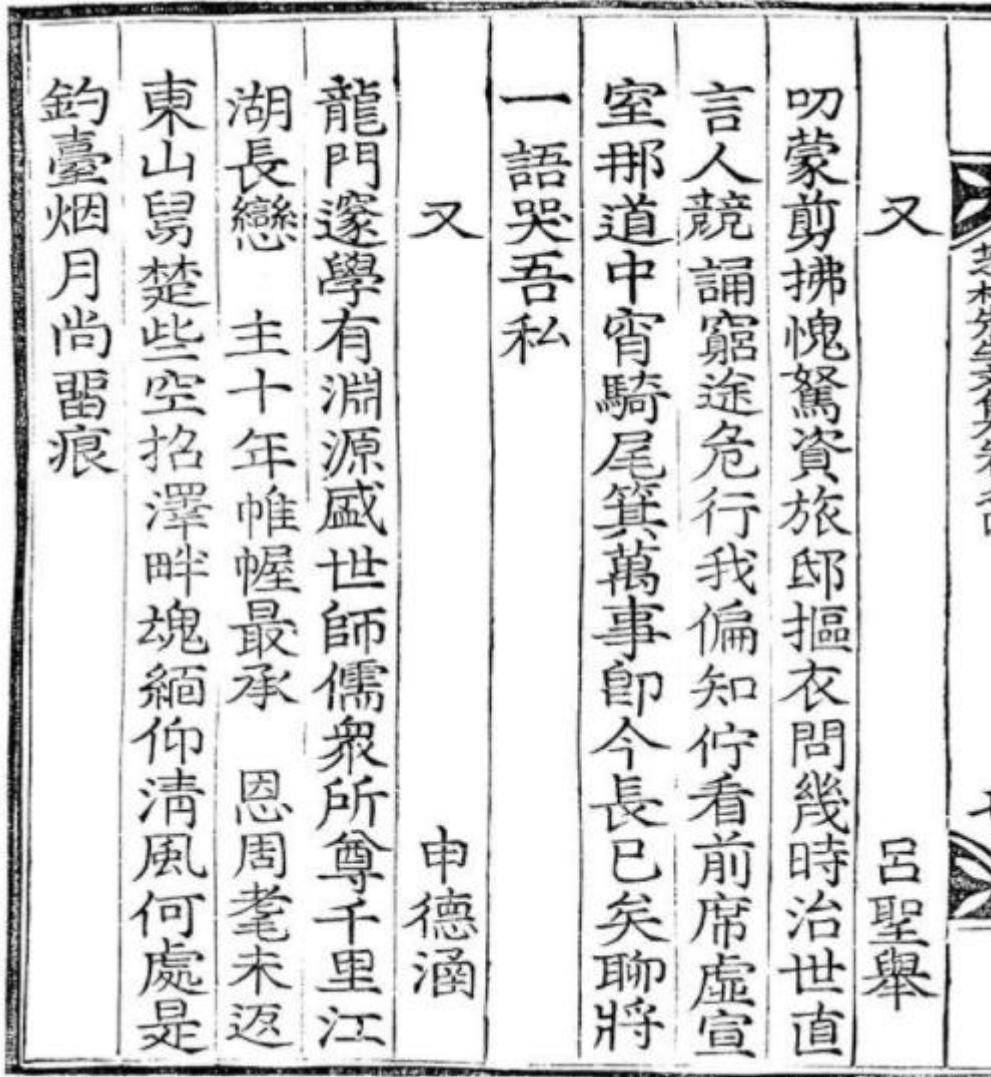 又 呂聖舉
叨蒙剪拂愧駑資旅邸摳衣問幾時治世直
言人競誦窮途危行我偏知佇看前席虛宣
室那道中宵騎尾箕萬事卽今長已矣聊將
一語哭吾私
又 申德涵
龍門邃學有淵源盛世師儒衆所尊千里江
湖長戀 主十年帷幄最承 恩周耄未返
東山舄楚些空招澤畔魂緬仰淸風何處是
釣臺烟月尙畱痕